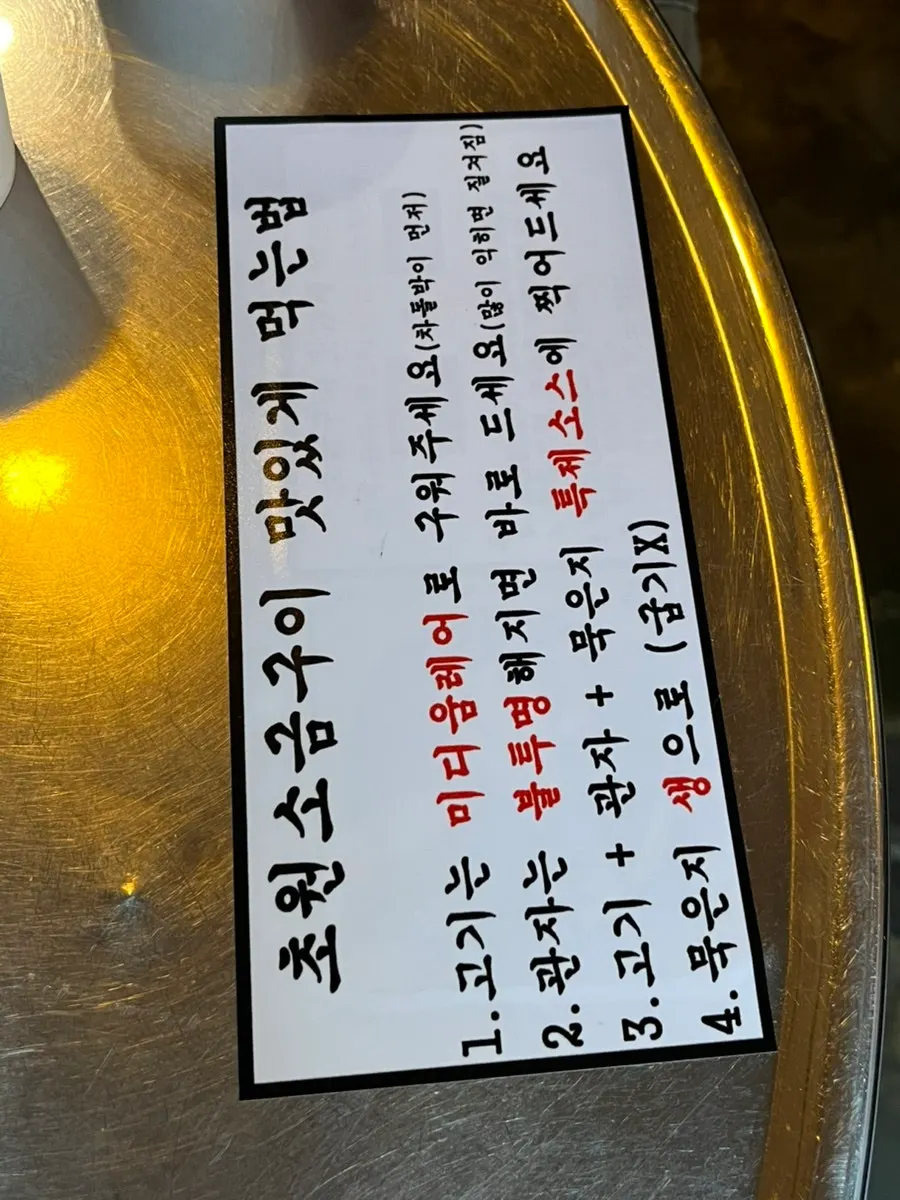 초원소금구이 맛있게 먹는법
1.고기는 미디움레어로 구워주세요(차돌박이 먼저)
2.관자는 불투명해지면 바로 드세요(많이 익히면 질겨짐)
3.고기 + 관자 + 묵은지 특제소스에 찍어드세요
4.묵은지 생으로 (굽기X)